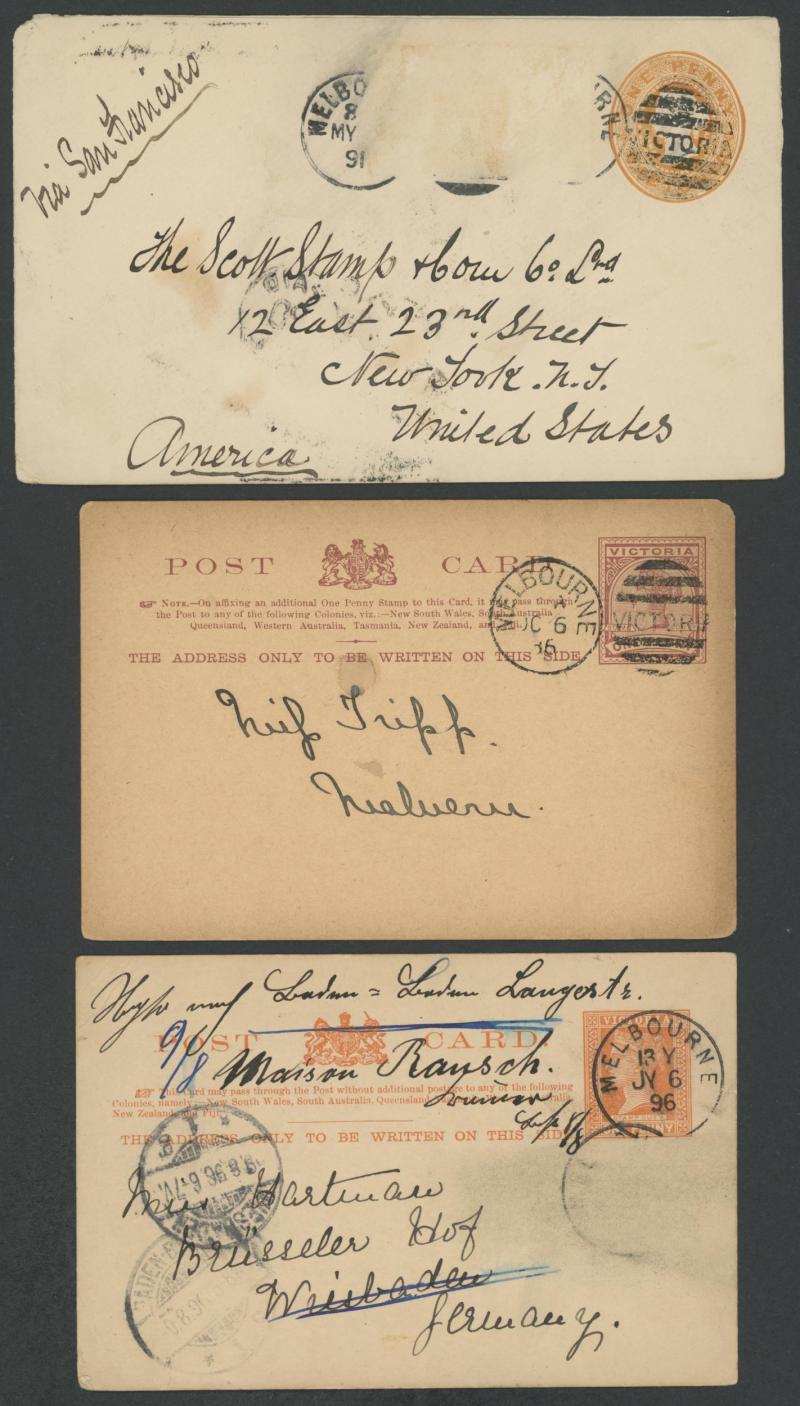 Via San Francisco
MELBOURNE
8
MY
91
ONE PENNY
VICTORIA
The Scott Stamp & Coin Co. Ltd
12 East 23rd Street
New York. N.Y.
United States
America
POST CARD
NOTE.—On affixing an additional One Penny Stamp to this Card, it may pass through
the Post to any of the following Colonies, viz.:—New South Wales, South Australia
Queensland, Western Australia, Tasmania, New Zealand, and
THE ADDRESS ONLY TO BE WRITTEN ON THIS SIDE
MELBOURNE
6
VICTORIA
VICTORIA
ONE
Miss Tripp.
Malvern.
Baden-Baden Langestr.
9/8
POST CARD
Maison Rausch.
This Card may pass through the Post without additional postage to any of the following
Colonies, namely—New South Wales, South Australia, Queensland
New Zealand, and Fiji.
8/8
THE ADDRESS ONLY TO BE WRITTEN ON THIS SIDE
VICTORIA
MELBOURNE
13 Y
JY 6
96
9.8.96.6-7V.
BADEN-B
Miss Hartman
Brüsseler Hof
Wiesbaden
Germany.